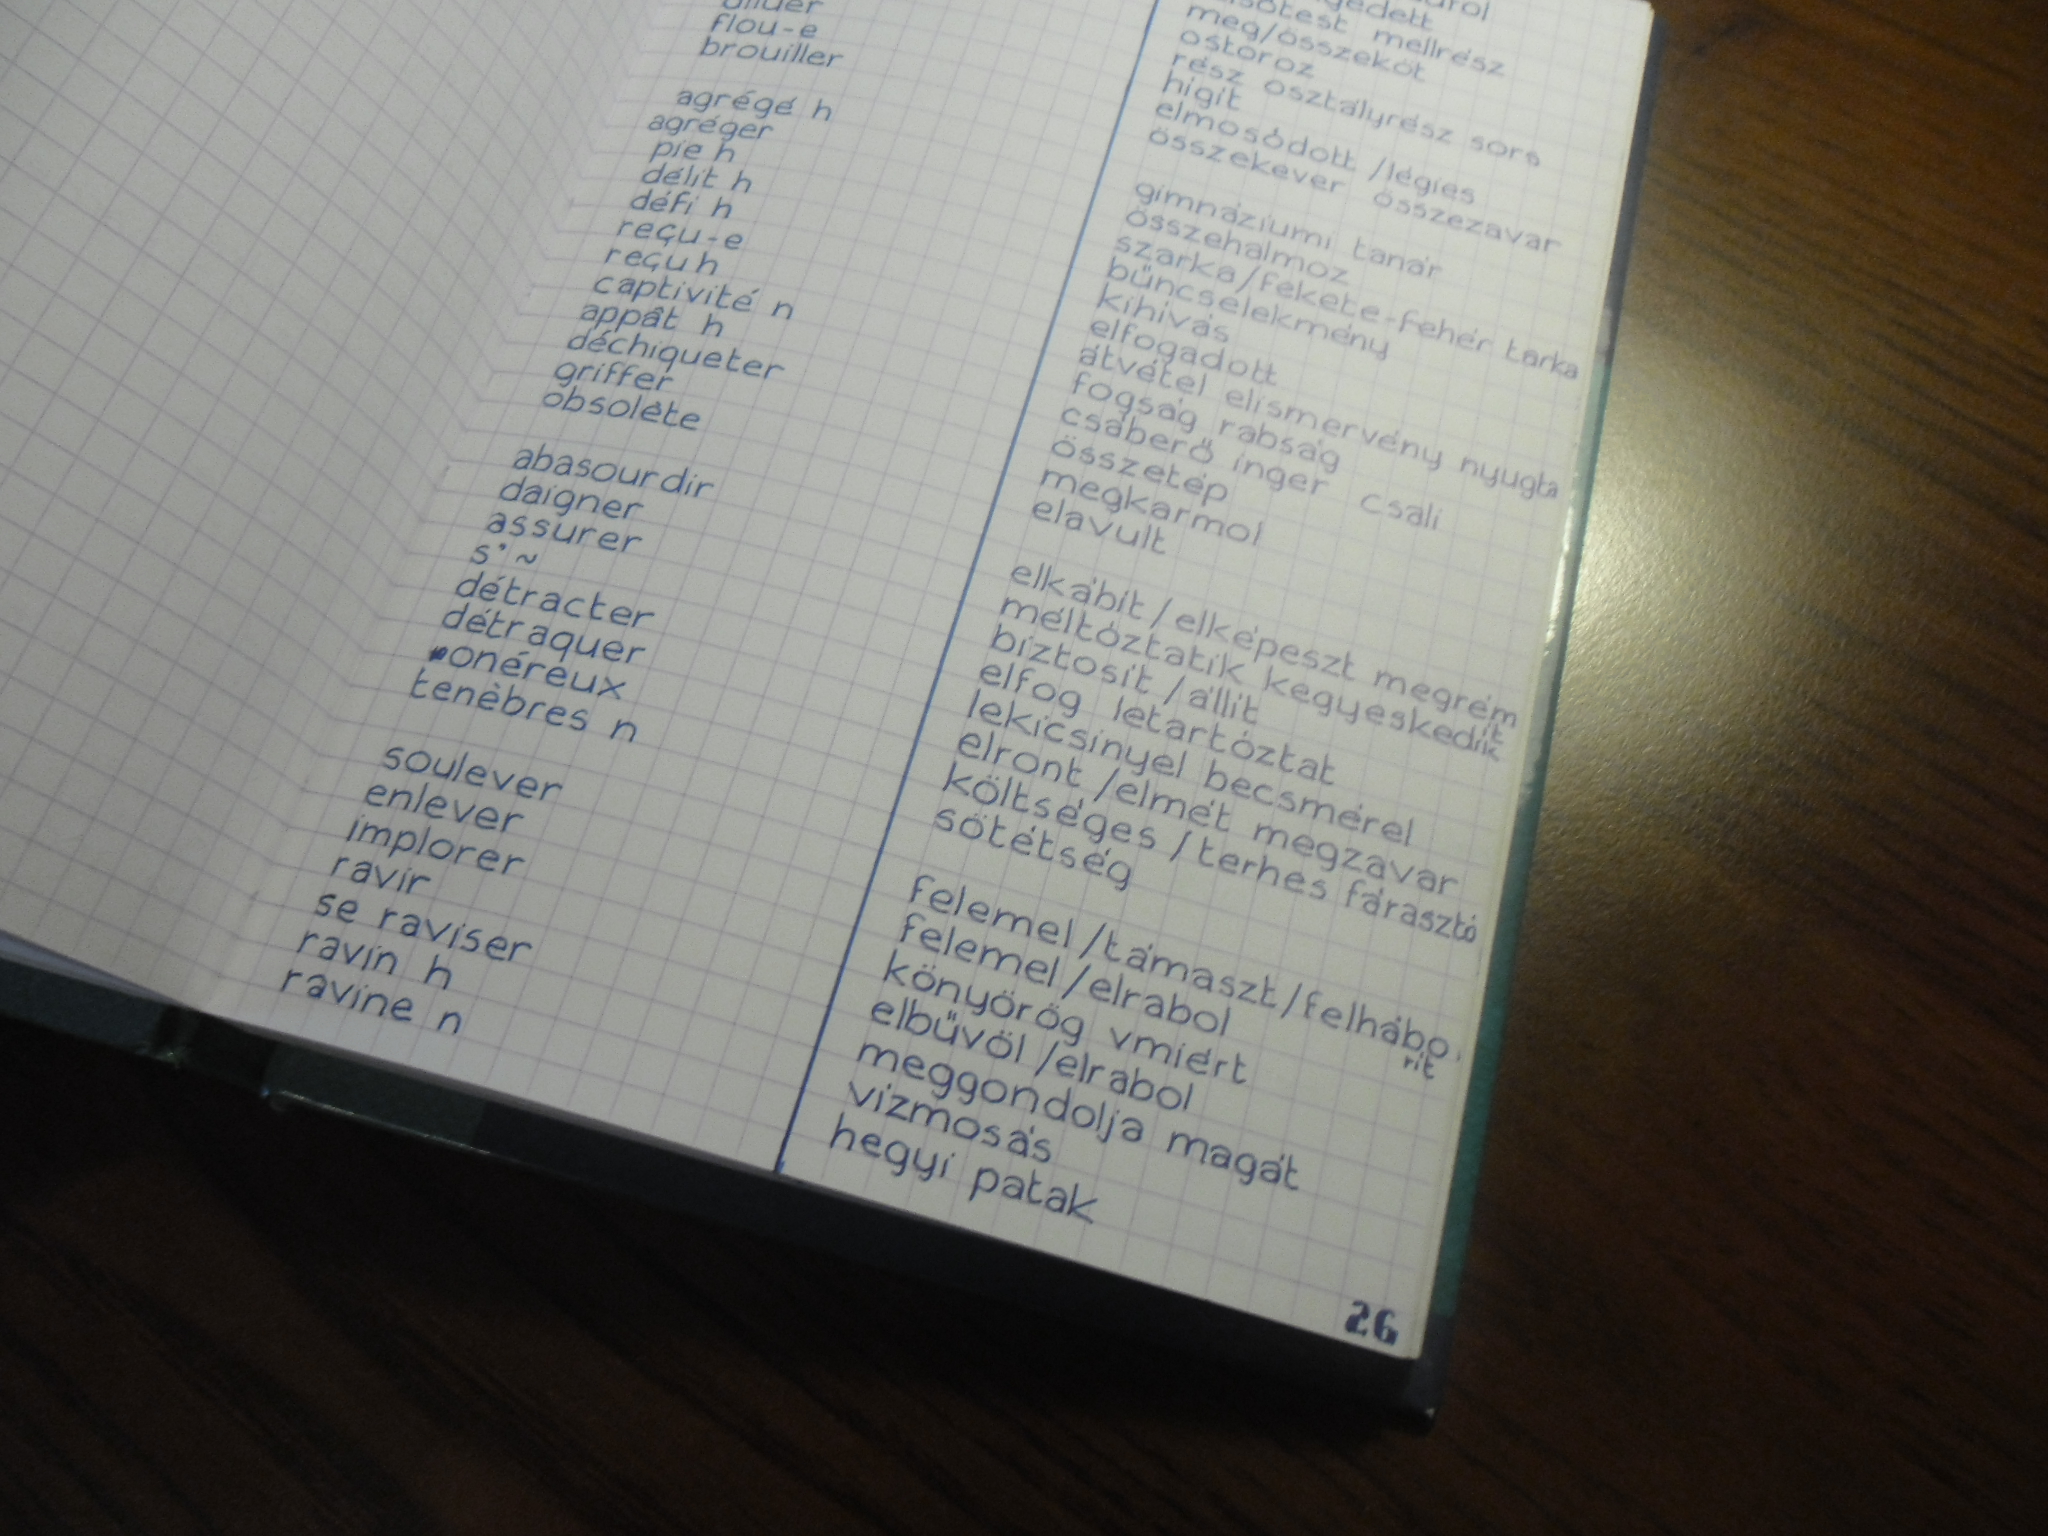 flou-e
brouiller
agrégé h
agréger
pie h
délit h
défi h
reçu-e
reçu h
captivité n
appât h
déchiqueter
griffer
obsolète
abasourdir
daigner
assurer
s' ~
détracter
détraquer
onéreux
tenèbres n
soulever
enlever
implorer
ravir
se raviser
ravin h
ravine n
mellrész
meg/összeköt
ostoroz
rész osztályrész sors
hígít
elmosódott /légies
összekever összezavar
gimnáziumi tanár
összehalmoz
szarka/fekete-fehér tarka
bűncselekmény
kihívás
elfogadott
átvétel elismervény nyugta
fogság rabság
csáberő inger csali
összetép
megkarmol
elavult
elkábít /elképeszt megrém
ít
méltóztatik kegyeskedik
biztosít /állít
elfog letartóztat
lekicsinyel becsmérel
elront /elmét megzavar
költséges /terhes fárasztó
sötétség
felemel /támaszt/felhábo
rít
felemel /elrabol
könyörög vmiért
elbűvöl /elrabol
meggondolja magát
vízmosás
hegyi patak
26